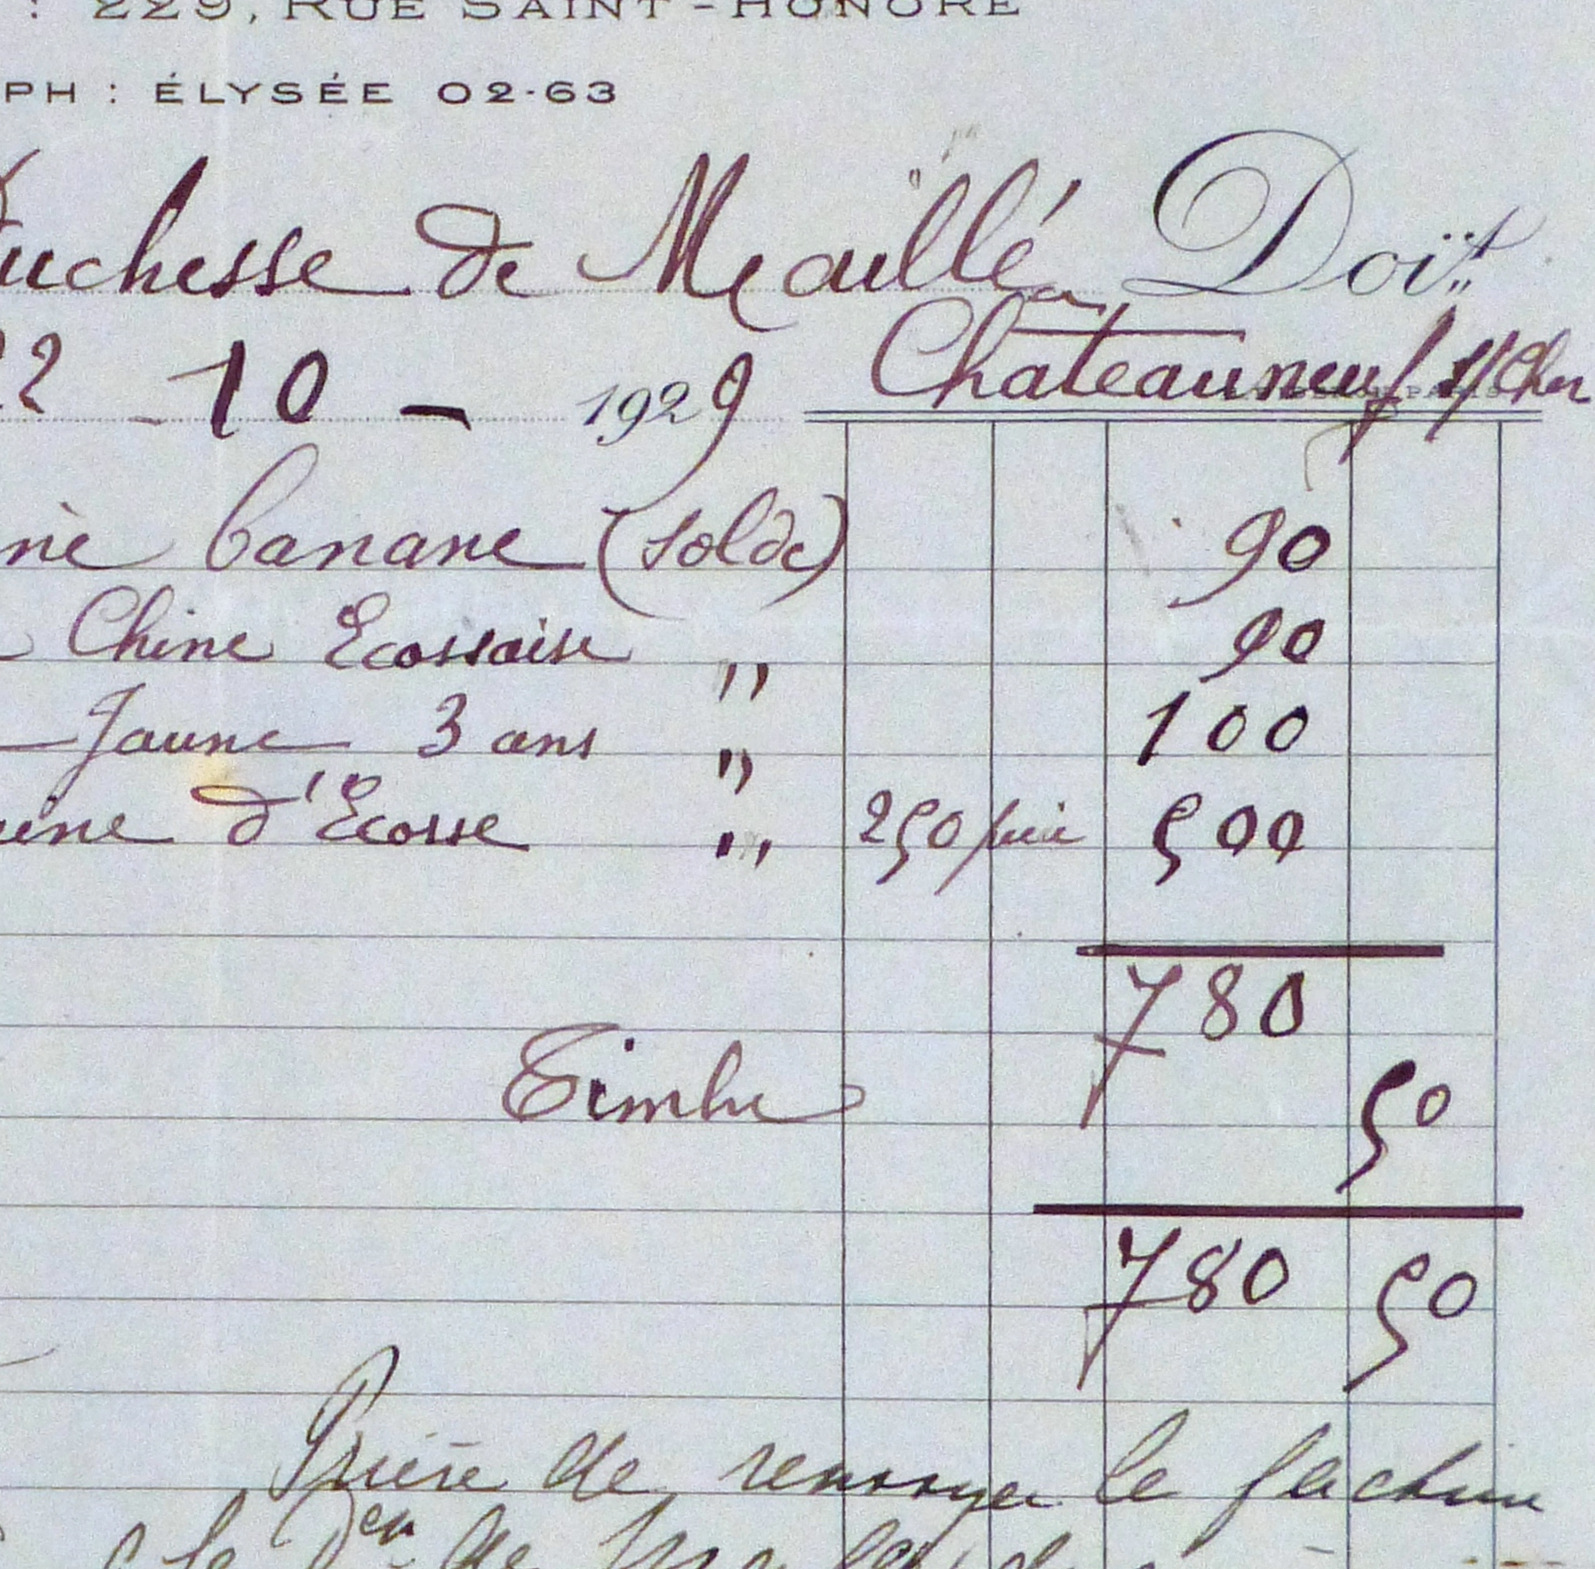 : 229, RUE SAINT-HONORÉ
PH : ÉLYSÉE 02-63
Duchesse de Maillé Doit
à Chateauneuf s/Cher
22 - 10 - 1929
banane (solde) 90
Chine Ecossaise " 90
Jaune 3 ans " 100
d'Ecosse " 250 pièce 500
780
Timbre 50
780 50
Prière de renvoyer la facture
de